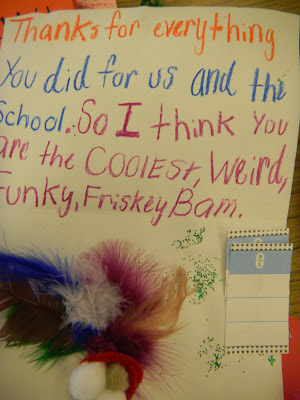 Thanks for everything
You did for us and the
School. So I think You
are the COOLEST, Weird,
Funky, Friskey Bam.